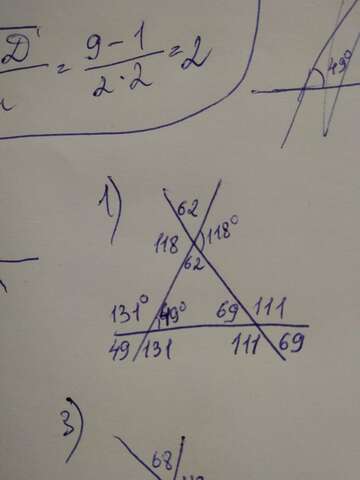 √D = 9-1 = 2
2·2
49°
1)
62
118 118°
62
131° 49° 69 111
49 131 111 69
3)
68